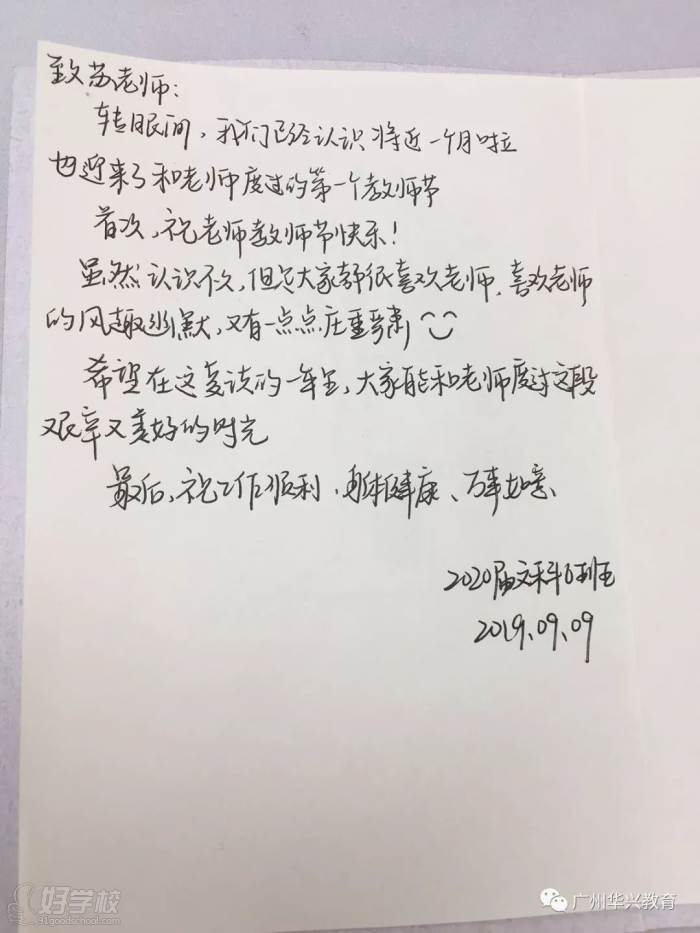 致苏老师:
转眼间,我们已经认识将近一个月啦
也迎来了和老师度过的第一个教师节
首次,祝老师教师节快乐!
虽然认识不久,但是大家都很喜欢老师、喜欢老师
的风趣幽默,又有一点点庄重严肃
希望在这复读的一年里,大家能和老师度过这段
艰辛又美好的时光
最后,祝工作顺利、身体健康、万事如意、
2020届文科
2019.09.09
好学校
91goodschool.com
广州华兴教育